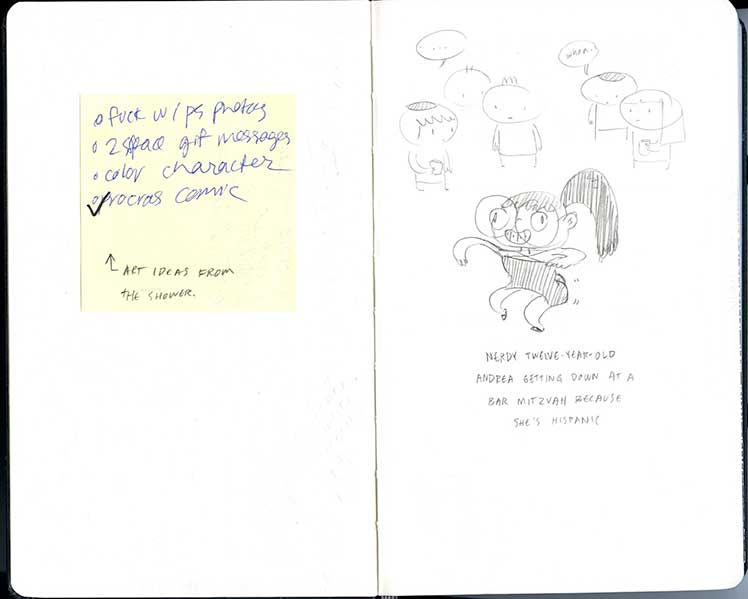 fuck w/ ps photos
2 gif messages
color character
procras comic
↑ ART IDEAS FROM
THE SHOWER.
...
whoa.
NERDY TWELVE-YEAR-OLD
ANDREA GETTING DOWN AT A
BAR MITZVAH BECAUSE
SHE'S HISPANIC